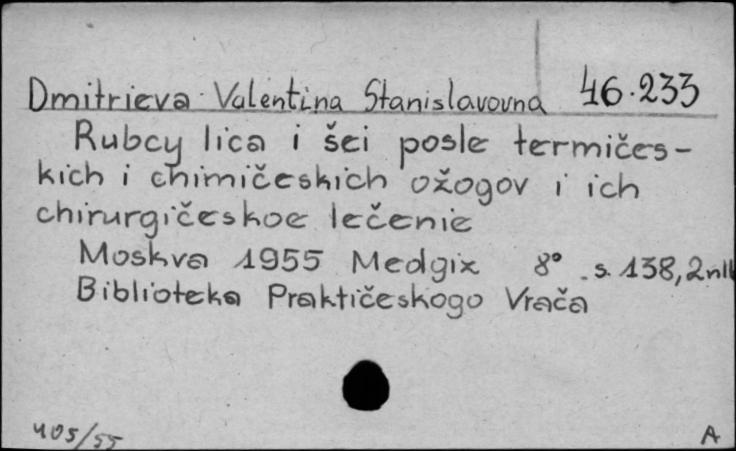 Dmitrieva Valentina Stanislavovna 46.233
Rubcy lica i šei posle termičes-
kich i chimičeskich ožogov i ich
chirurgičeskoe lečenie
Moskva 1955 Medgiz 8° s. 138, 2 nlb
Biblioteka Praktičeskogo Vrača
405/55 A